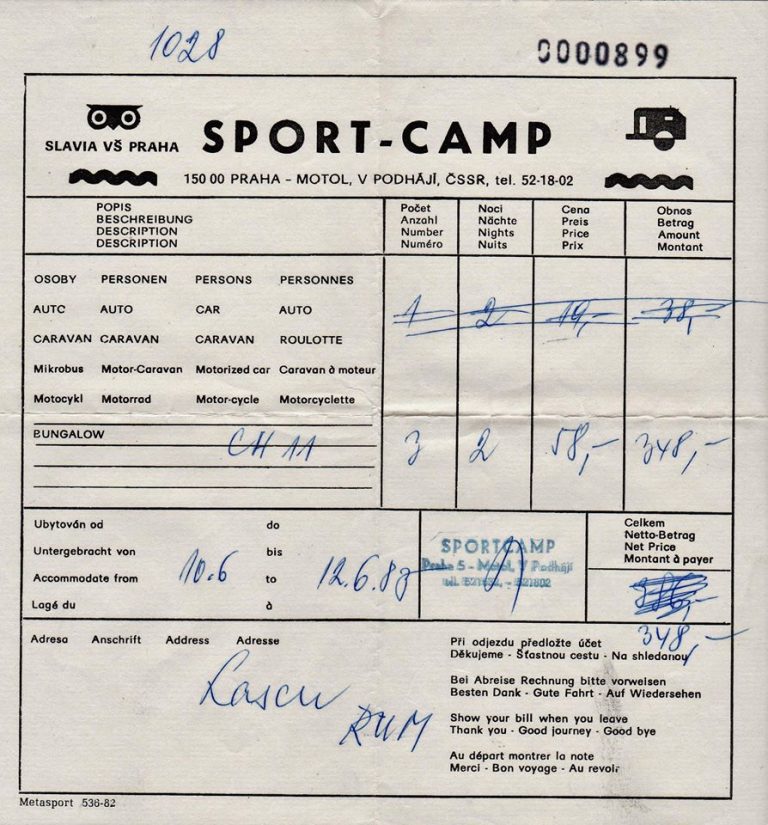 1028
0000899
SLAVIA VŠ PRAHA
SPORT-CAMP
150 00 PRAHA – MOTOL, V PODHÁJÍ, ČSSR, tel. 52-18-02
POPIS
BESCHREIBUNG
DESCRIPTION
DESCRIPTION
Počet
Anzahl
Number
Numéro
Noci
Nächte
Nights
Nuits
Cena
Preis
Price
Prix
Obnos
Betrag
Amount
Montant
OSOBY PERSONEN PERSONS PERSONNES
AUTC AUTO CAR AUTO 1 2 19,- 38,-
CARAVAN CARAVAN CARAVAN ROULOTTE
Mikrobus Motor-Caravan Motorized car Caravan à moteur
Motocykl Motorrad Motor-cycle Motorcyclette
BUNGALOW CH 11 3 2 58,- 348,-
Ubytován od do
Untergebracht von bis
Accommodate from to
Lagé du à
10.6 12.6.83
SPORTCAMP
Praha 5 - Motol, V Podhájí
tel. 521802
Celkem
Netto-Betrag
Net Price
Montant à payer
348,-
Adresa Anschrift Address Adresse
Lascu
RUM
Při odjezdu předložte účet
Děkujeme - Šťastnou cestu - Na shledanou
Bei Abreise Rechnung bitte vorweisen
Besten Dank - Gute Fahrt - Auf Wiedersehen
Show your bill when you leave
Thank you - Good journey - Good bye
Au départ montrer la note
Merci - Bon voyage - Au revoir
Metasport 536-82